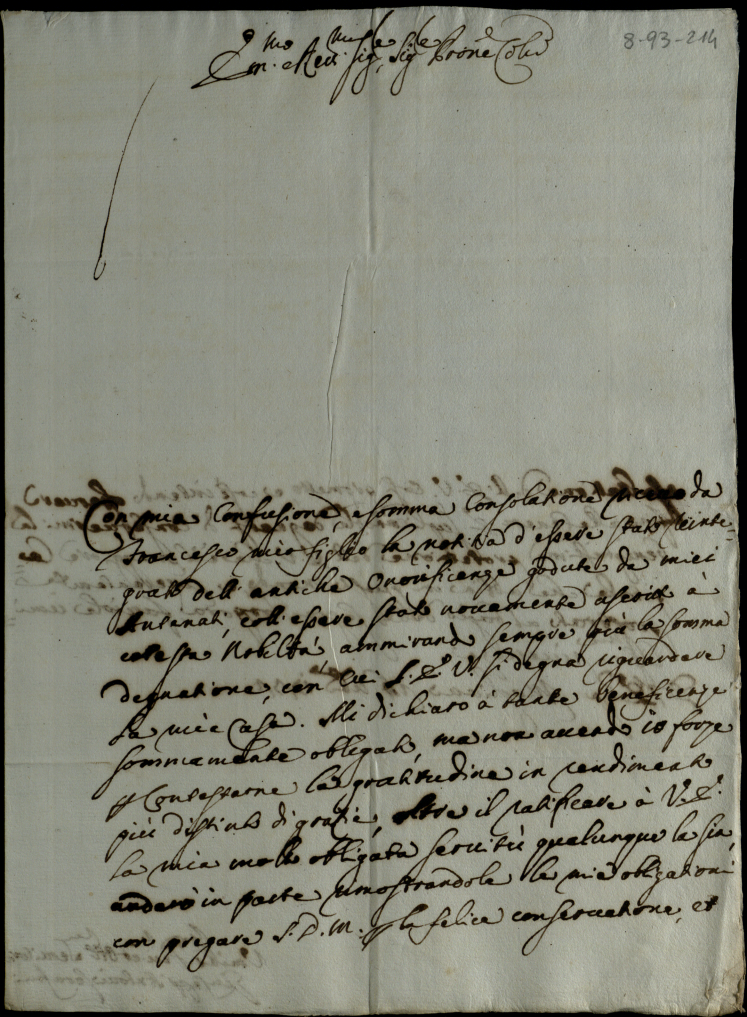 8-93-214
Em.mo e Rev.mo Sig.re Sig.re Prone Col.mo
Con mia Confusione, e somma Consolatione ricevo da
Francesco mio figlio la notitia d'essere stato reinte-
grato dell'antiche Onorificenze godute da miei
Antenati, coll'essere stato novamente ascritto à
cotesta Nobiltà, ammirando sempre più la somma
degnatione, con cui l'E. V. si degna riguardare
la mia Casa. Mi dichiaro à tante beneficenze
sommamente obligato, ma non avendo io forze
p Contestarne la gratitudine in rendimento
più distinto di gratie, oltre il ratificare à V. E.
la mia molto obligata servitù qualunque la sia,
anderò in parte rimostrandole le mie obligationi
con pregare S. D. M. p la felice conservatione, et